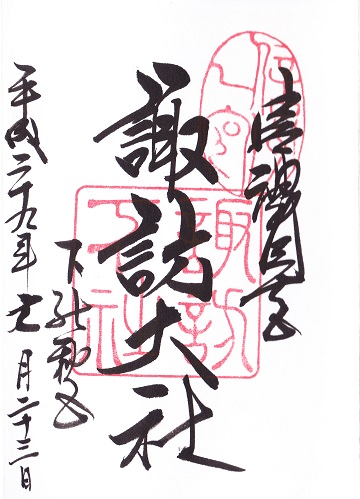 信濃國一宮
諏訪大社
下社秋宮
平成二十九年七月二十三日
諏訪大社